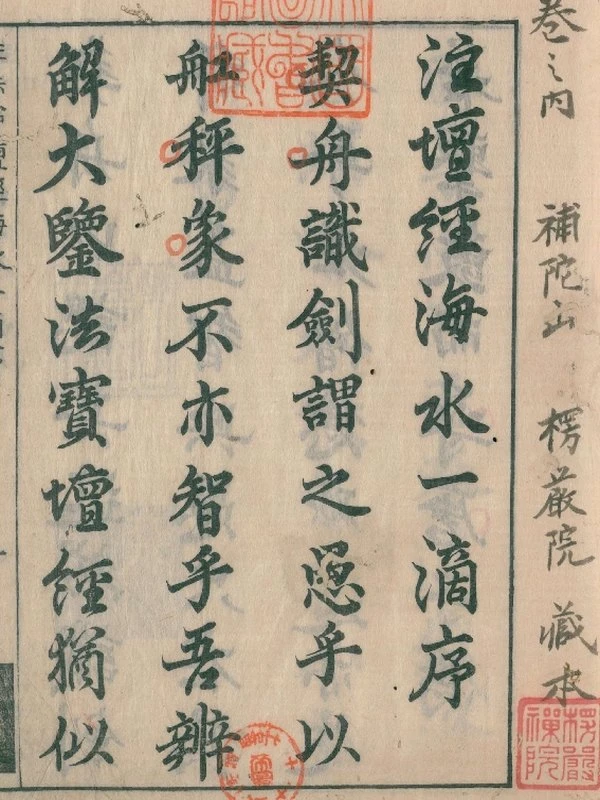 卷之内 補陀山 楞嚴院 藏本
楞嚴禪院
注壇經海水一滴序
契舟識劍謂之愚乎以
舡秤象不亦智乎吾辨
解大鑒法寶壇經猶似